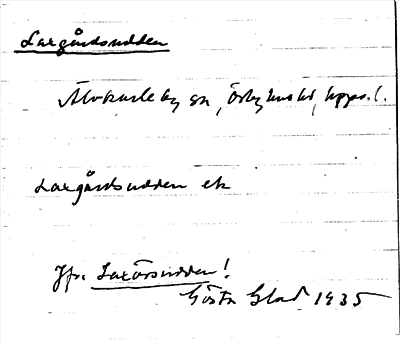 Laxgårdsudden
Älvkarleby sn, Örbyhus hd, Upps. l.
Laxgårdsudden ek
Jfr. Laxörsudden!
Gösta Glad 1935